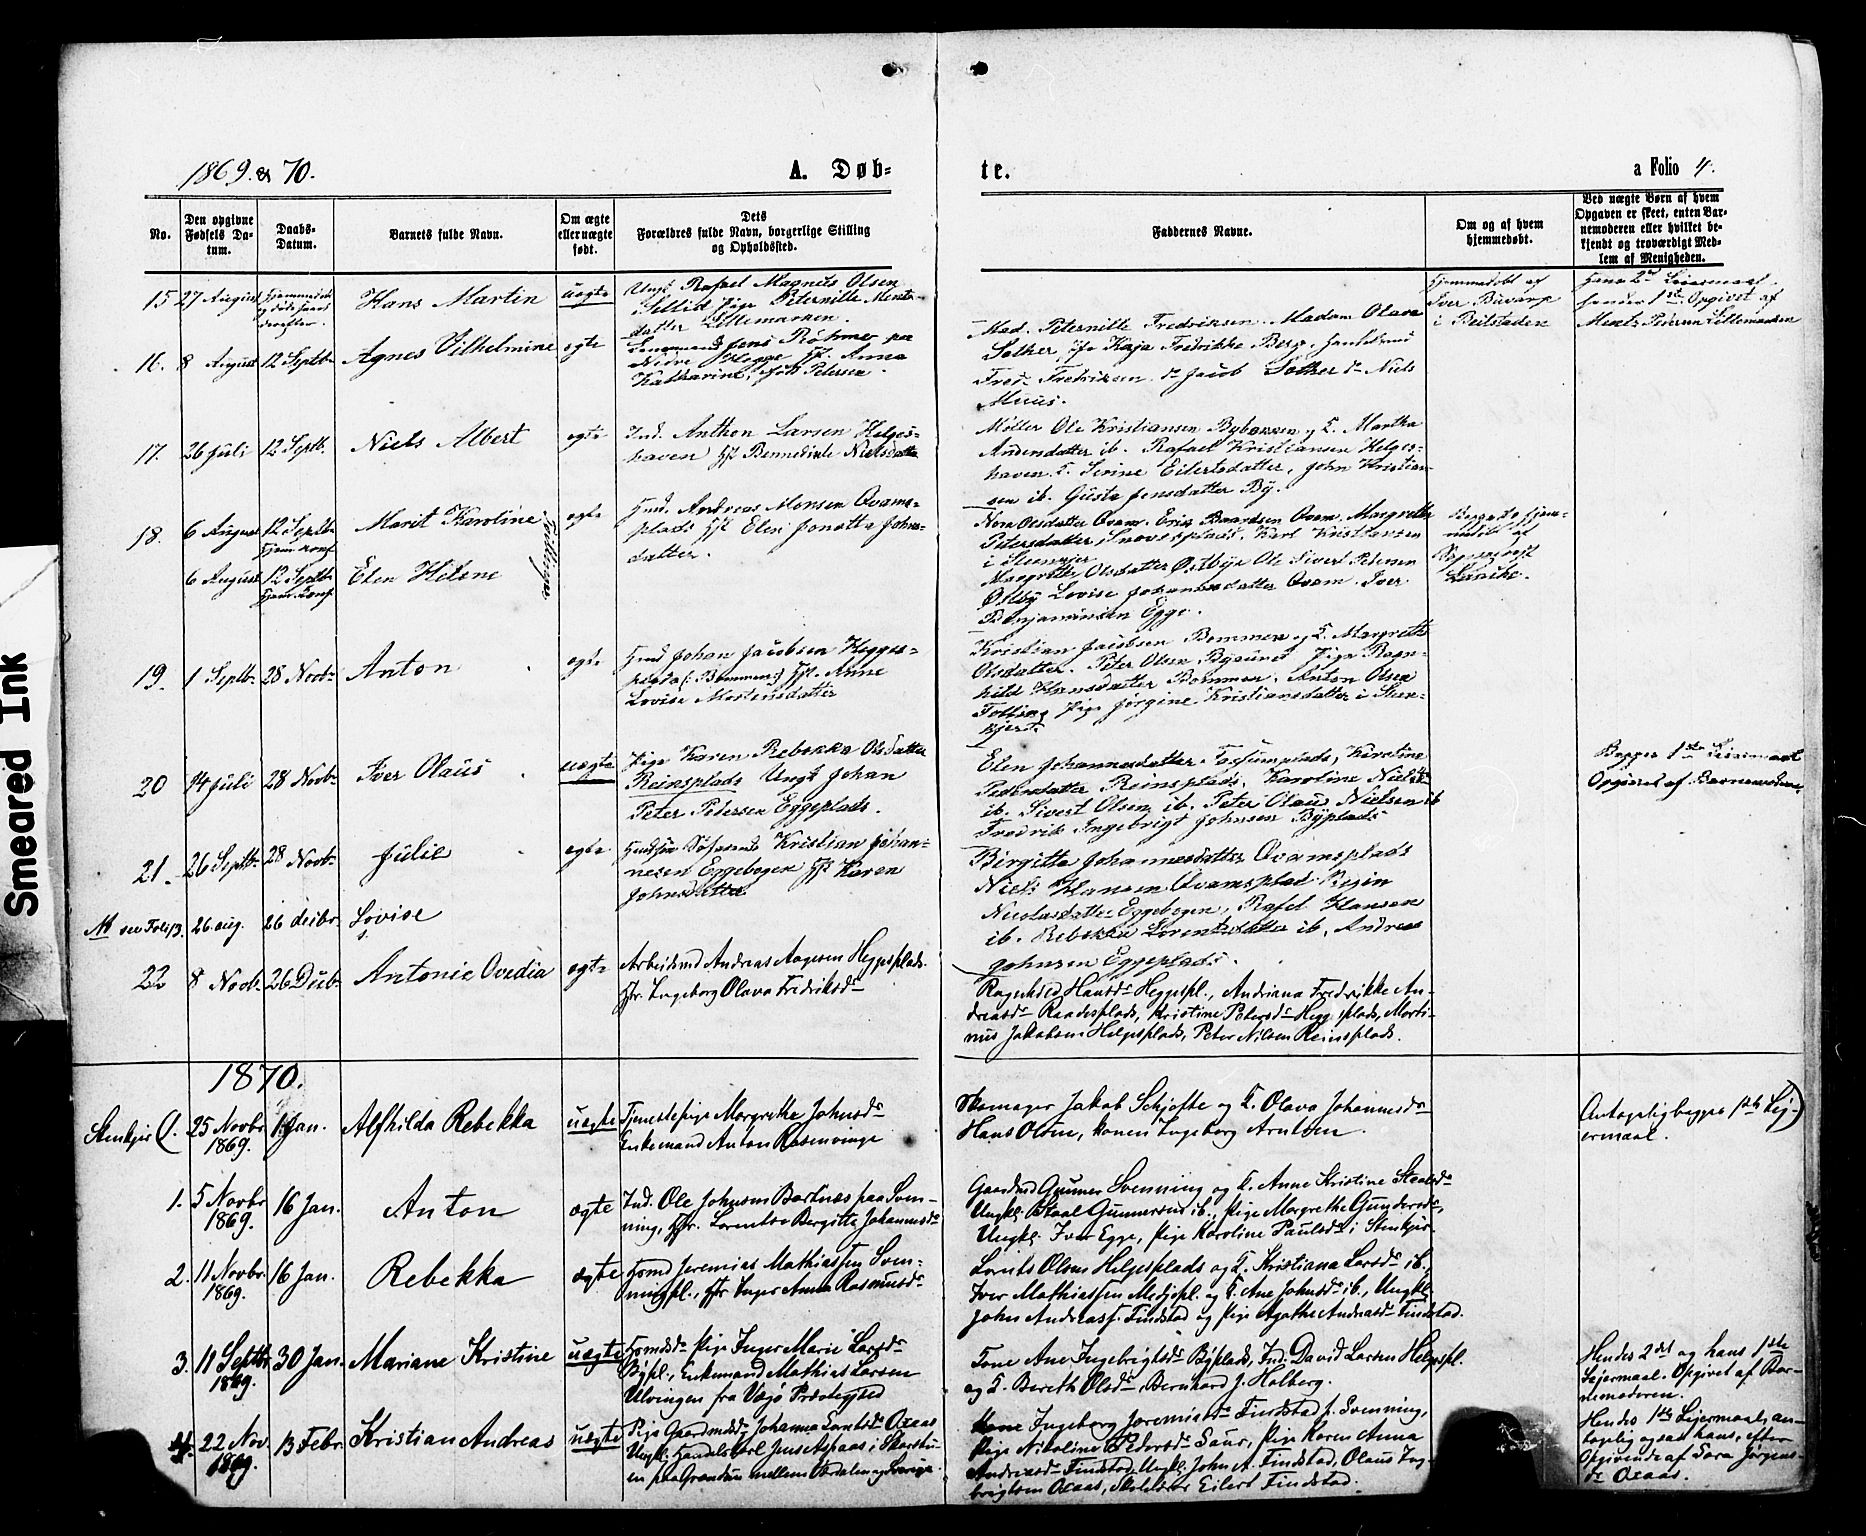 1869 & 70.
A. Døb-
te.
a Folio 4.
No.
Den opgivne Fødsels Da-
tum.
Daabs-
Datum.
Barnets fulde Navn.
Om ægte
eller uægte
født.
Dets
Forældres fulde Navn, borgerlige Stilling
og Opholdssted.
Faddernes Navne.
Om og af hvem
hjemmedøbt.
Ved uægte Børn af hvem
Opgaven er skeet, enten Bar-
nemoderen eller hvilket be-
kjendt og troværdigt Med-
lem af Menigheden.
15 27 August
Hans Martin
uægte
Ungk Rafael Magnus Olsen
Sellid Pige Peternille Ments-
datter Lillemarken.
Hjemmedøbt af
Iver Buvarp
i Beilstaden
Hans 2det Leiermaal
hendes 1ste. Opgivet af
Mentz Pedersen Lillemarken
16. 8 August 12 Septb.
Agnes Vilhelmine
egte
Jens Röhme paa
Nedre Hegge H. Anna
Katharine, født Petersen.
Mad. Peternille Fredriksen. Madam Olava
Sother, Kaja Fredrikke Berg, Handelsmd
Fred. Fredriksen, do Jacob Sother do Niels
Muus.
17. 26 Juli 12 Septb.
Niels Albert
egte
Ind. Anthon Larsen Helges-
haven Hst Bennedikte Nielsdatter
Møller Ole Kristiansen Byboxsen og K. Martha
Andersdatter ib. Rafael Kristiansen Helges-
haven K. Serine Eilertsdatter, John Kristian-
sen ib. Gusta Jensdatter By.
18. 6 August 12 Septb.
Hjem. conf
Marit Karoline
Tvillinger
egte
Hmd. Andreas Monsen Qvams-
plads Hst Elen Jonetta Johns-
datter.
Nora Olsdatter Qvam. Eric Baardsen Qvam. Margrethe
Petersdatter, Snøvesplads. Karl Kristiansen
i Steenkjer
Margrethe Olsdatter Østbye Ole Sivert Petersen
Østby Lovise Johannesdatter Qvam. Iver
Benjaminsen Egge.
Begge to hjem-
medøbt af
6 August 12 Septb.
Hjem. conf
Elen Helene
19. 1 Septb. 28 Novb.
Anton
egte
Hmd Johan Jacobsen Hegges-
plads (Bommen) Hst. Anne
Lovise Mortensdatter
Kristian Jacobsen Bommen og K. Margrethe
Olsdatter. Peter Olsen Byaunet Pige Ragn-
hild Hansdatter Bommen. Anton Olsen
Folling Pige Jørgine Kristiansdatter i Steen-
kjer.
20 14 Juli 28 Novb.
Iver Olaus
uægte
Pige Karen Rebekka Olsdatter
Reinsplads Ungk Johan
Peter Petersen Eggeplads.
Elen Johannesdatter Kirstine
Pedersdatter Reinsplads. Karoline Nielsdr
ib. Sivert Olsen ib. Peter Olaus Nielsen ib
Fredrik Ingebrigt Johnsen Byplads
Begges 1ste Leiermaal
Opgivet af Barnemoderen
21. 26 Septb. 28 Novb.
Julie
egte
Kristian Johan-
nesen Eggebogen Hst Karen
Johnsdatter
Birgitta Johannesdatter Qvamsplads
Niels Hansen Qvamsplad. Begin
Nicolasdatter Eggebogen, Rafel Hansen
ib. Rebekka Lorentsdatter ib, Andreas
Johnsen Eggeplads.
26 aug. 26 decbr
Lovise
22 8 Novb. 26 Decb.
Antonie Ovedia
egte
Arbeidsmd Andreas Aagesen Heggesplads.
Hr. Ingeborg Olava Fredriksdr
Ragnhild Hansdr Heggespl., Andriana Fredrikke An-
dreasdr Raadesplads, Kristine Petersdr Heggesplads, Morti-
nus Jakobsen Helgesplads, Peter Nilsen Reinsplads.
1870.
Stenkjer (1. 25 Novbr 1869. 1 Jan.
Alfhilda Rebekka
uægte
Tjenestepige Margrethe Johnsdr
Enkemand Anton Rosenvinge
Skomager Jakob Schjefte og K. Olava Johannesdr
Hans Olsen, konen Ingeborg Arntsen.
Antagelig begges 1ste Lej-
ermaal.
1. 5 Novbr 1869. 16 Jan.
Anton
ægte
Ind. Ole Johnsen Bartnes paa Sven-
ning, Hr. Lorentse Bergitte Johannesdr
Gaardmd Gunner Svenning og K. Anne Kristine Staalsdr
Ungkl. Staal Gunnersen ib., Pige Margrethe Gundersdr,
Ungkl. Iver Egge, Pige Karoline Paulsdr i Stenkjer
2. 11 Novbr 1869. 16 Jan.
Rebekka
ægte
Hsmd Jeremias Mathiassen Sven-
ningpl., Hr Inger Anna Rasmusdr
Lorents Olsen Helgesplads og K. Kristiana Larsdr ib.,
Iver Mathiassen Medjepl. og K. Ane Johnsdr ib., Ungkl.
John Andreass. Findstad og Pige Agathe Andreasdr Findstad.
3. 11 Septbr 1869. 30 Jan.
Mariane Kristine
uægte
Hsmdsdr Pige Inger Marie Larsdr
Bypl., Enkemand Mathias Larsen
Ulvingen fra Vægø Præstegjeld
Tone Ane Ingebrigtsdr Byplads, Ind. David Larsen Helgespl.
og K. Bereth Olsdr, Bernhard J. Holberg.
Hendes 2det og hans 1ste
Lejermaal. Opgivet af Bar-
nemoderen.
4. 22 Nov. 1869. 13 Febr.
Kristian Andreas
uægte
Pige Gaardmdsdr Johanna Lorntsdr Oxaas
Ungkl. Handelskarl Jens Aspaas i Skorstu-
en paa Grændsen mellem Værdalen og Sverige.
Kone Ingeborg Jeremiasdr Findstad p. Svenning,
Pige Nikoline Pedersdr Saur, Pige Karen Anna
Andreasdr Findstad, Ungkl. John A. Findstad, Olaus Ing-
brigtsen Oxaas, Skolelærer Eilert Findstad.
Hendes 1ste Lejermaal, an-
tagelig ogsaa hans, efter
Opgivende af Sara Jørgens-
dr Oxaas.
Smeared Ink